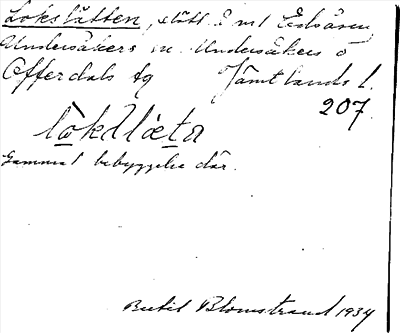 Lokslätten, slått å ml Edsåsen
Undersåkers sn. Undersåkers o
Offerdals tg Jämtlands l.
207.
lòkslæta
Gammal bebyggelse där.
Bertil Blomstrand 1934